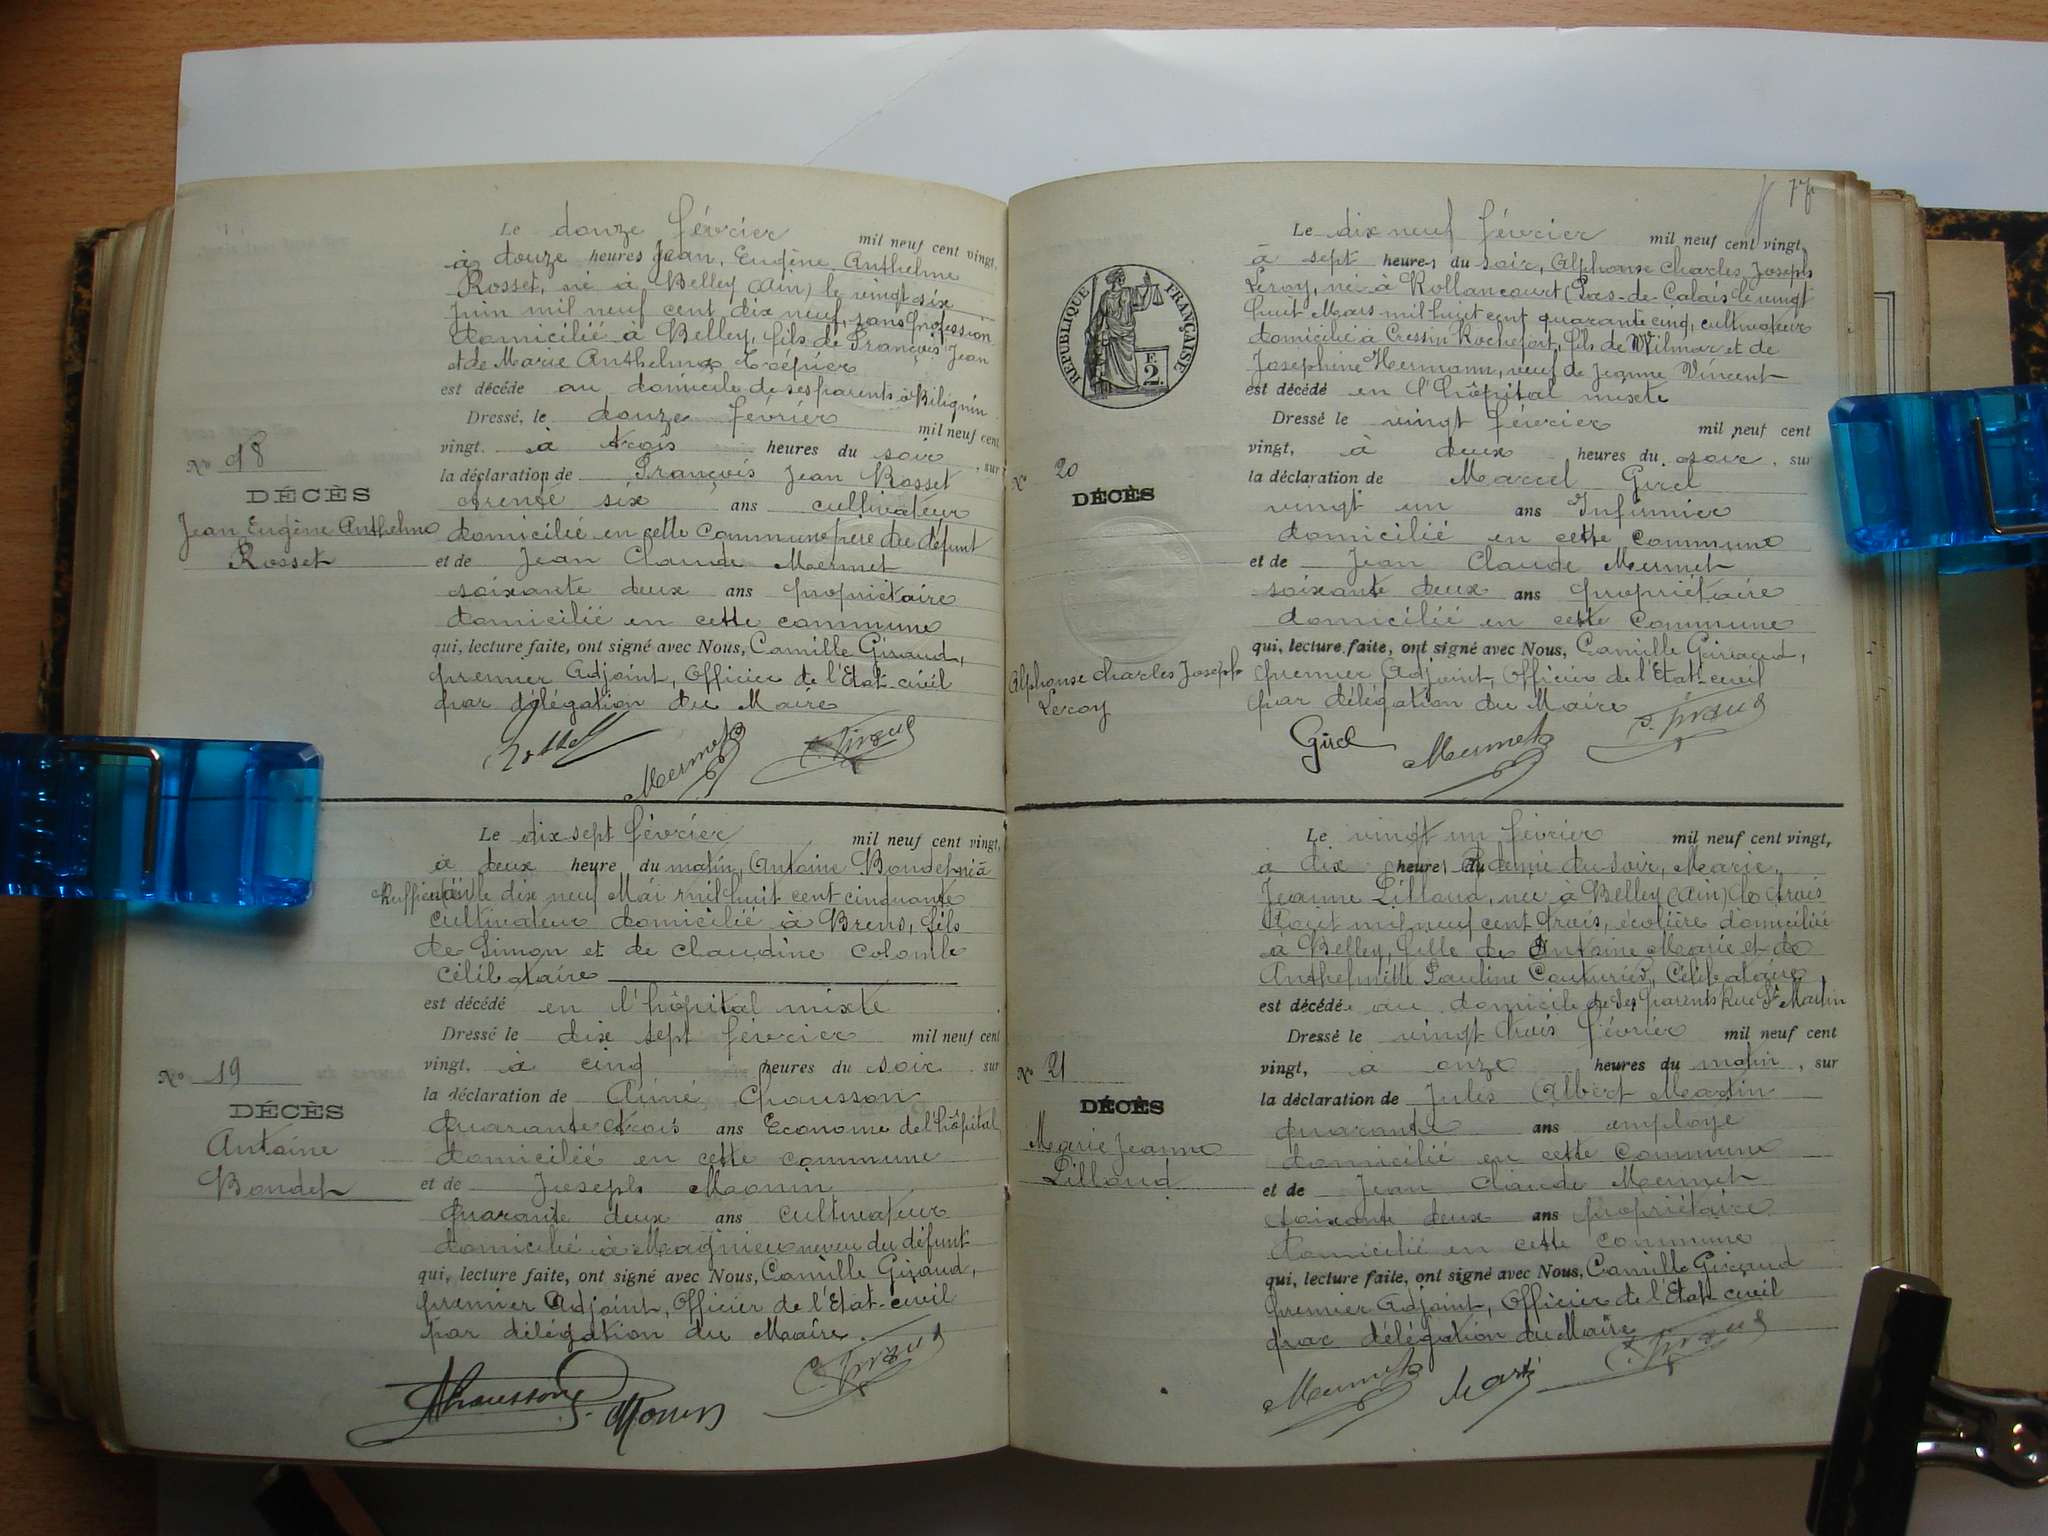 Le douze février mil neuf cent vingt,
à douze heures Jean, Eugène Anthelme
Rosset, né à Belley (Ain) le vingt six
juin mil neuf cent dix neuf, sans profession
domicilié à Belley, fils de François Jean
et de Marie Anthelma
est décédé au domicile de ses parents à Bilignin
Dressé, le douze février mil neuf cent
vingt, à trois heures du soir, sur
la déclaration de François Jean Rosset
trente six ans cultivateur
domicilié en cette commune père du défunt
et de Jean Claude Mermet
soixante deux ans propriétaire
domicilié en cette commune
qui, lecture faite, ont signé avec Nous, Camille Giraud,
premier Adjoint, Officier de l'Etat-civil
par délégation du Maire
Rosset Mermet C. Giraud
No 18
DÉCÈS
Jean Eugène Anthelme
Rosset
Le dix sept février mil neuf cent vingt,
à deux heure du matin Antoine Bondet né à
Ruffieu (Ain) le dix neuf Mai mil huit cent cinquante
cultivateur domicilié à Brens, fils
de Simon et de Claudine Colomb
célibataire
est décédé en l'hôpital mixte
Dressé le dix sept février mil neuf cent
vingt, à cinq heures du soir, sur
la déclaration de Aimé Chausson
quarante trois ans Econome de l'hôpital
domicilié en cette commune
et de Joseph Monin
quarante deux ans cultivateur
domicilié à Magnieu neveu du défunt
qui, lecture faite, ont signé avec Nous, Camille Giraud,
premier Adjoint, Officier de l'Etat-civil
par délégation du Maire
Chausson J. Monin C. Giraud
No 19
DÉCÈS
Antoine
Bondet
77
RÉPUBLIQUE FRANÇAISE
F.
2.
Le dix neuf février mil neuf cent vingt,
à sept heures du soir, Alphonse Charles Joseph
Leroy, né à Rollancourt (Pas-de-Calais) le vingt
huit Mars mil huit cent quarante cinq, cultivateur
domicilié à Cressin Rochefort, fils de Wilmar et de
Joséphine Hermann, veuf de Jeanne Vincent
est décédé en l'hôpital mixte
Dressé le vingt février mil neuf cent
vingt, à deux heures du soir, sur
la déclaration de Marcel Girel
vingt un ans Infirmier
domicilié en cette commune
et de Jean Claude Mermet
soixante deux ans propriétaire
domicilié en cette commune
qui, lecture faite, ont signé avec Nous, Camille Giraud,
premier Adjoint, Officier de l'Etat-civil
par délégation du Maire
Girel Mermet C. Giraud
No 20
DÉCÈS
Alphonse Charles Joseph
Leroy
Le vingt un février mil neuf cent vingt,
à dix heures et demie du soir, Marie,
Jeanne Lilloud, née à Belley (Ain) le trois
Aout mil neuf cent trois, écolière domiciliée
à Belley, fille de Antoine Marie et de
Anthelmette Pauline Couturier, Célibataire
est décédé au domicile de ses parents Rue St Martin
Dressé le vingt trois février mil neuf cent
vingt, à onze heures du matin, sur
la déclaration de Jules Albert Martin
quarante ans employé
domicilié en cette commune
et de Jean Claude Mermet
soixante deux ans propriétaire
domicilié en cette commune
qui, lecture faite, ont signé avec Nous, Camille Giraud
premier Adjoint, Officier de l'Etat-civil
par délégation du Maire
Mermet Martin C. Giraud
No 21
DÉCÈS
Marie Jeanne
Lilloud